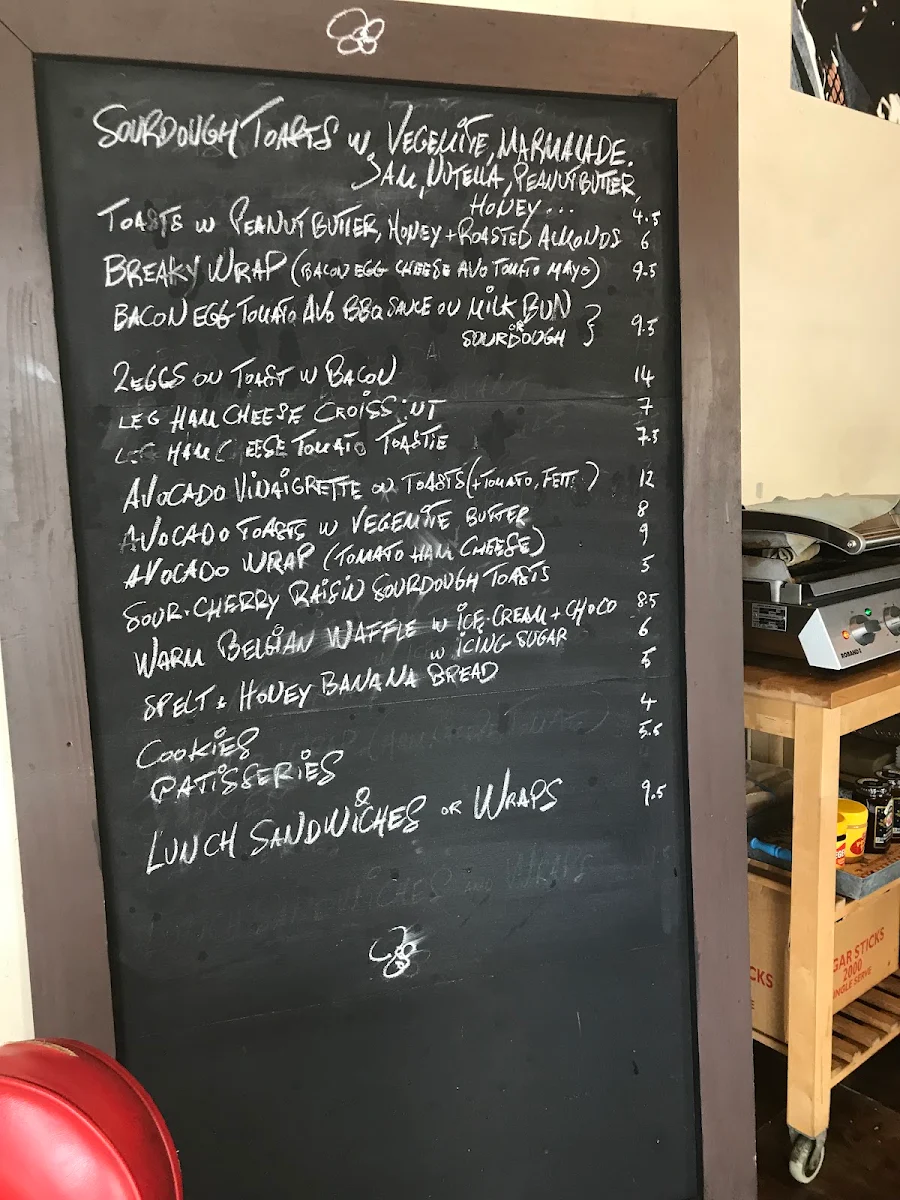 SOURDOUGH TOASTS W VEGEMITE, MARMALADE.
JAM, NUTELLA, PEANUT BUTTER,
HONEY... 4.5
TOASTS W PEANUT BUTTER, HONEY + ROASTED ALMONDS 6
BREAKY WRAP (BACON EGG CHEESE AVO TOMATO MAYO) 9.5
BACON EGG TOMATO AVO BBQ SAUCE ON MILK BUN
OR
SOURDOUGH } 9.5
2 EGGS ON TOAST W BACON 14
LEG HAM CHEESE CROISS NT 7
LEG HAM C EESE TOMATO TOASTIE 7.5
AVOCADO VINAIGRETTE ON TOASTS (+TOMATO, FETT ) 12
AVOCADO TOASTS W VEGEMITE BUTTER 8
AVOCADO WRAP (TOMATO HAM CHEESE) 9
SOUR-CHERRY RAISIN SOURDOUGH TOASTS 5
WARM BELGIAN WAFFLE W ICE-CREAM + CHOCO 8.5
W ICING SUGAR 6
SPELT & HONEY BANANA BREAD 5
COOKIES 4
PATISSERIES 5.5
LUNCH SANDWICHES OR WRAPS 9.5
ROBAND
GAR STICKS
2000
NGLE SERVE
CKS